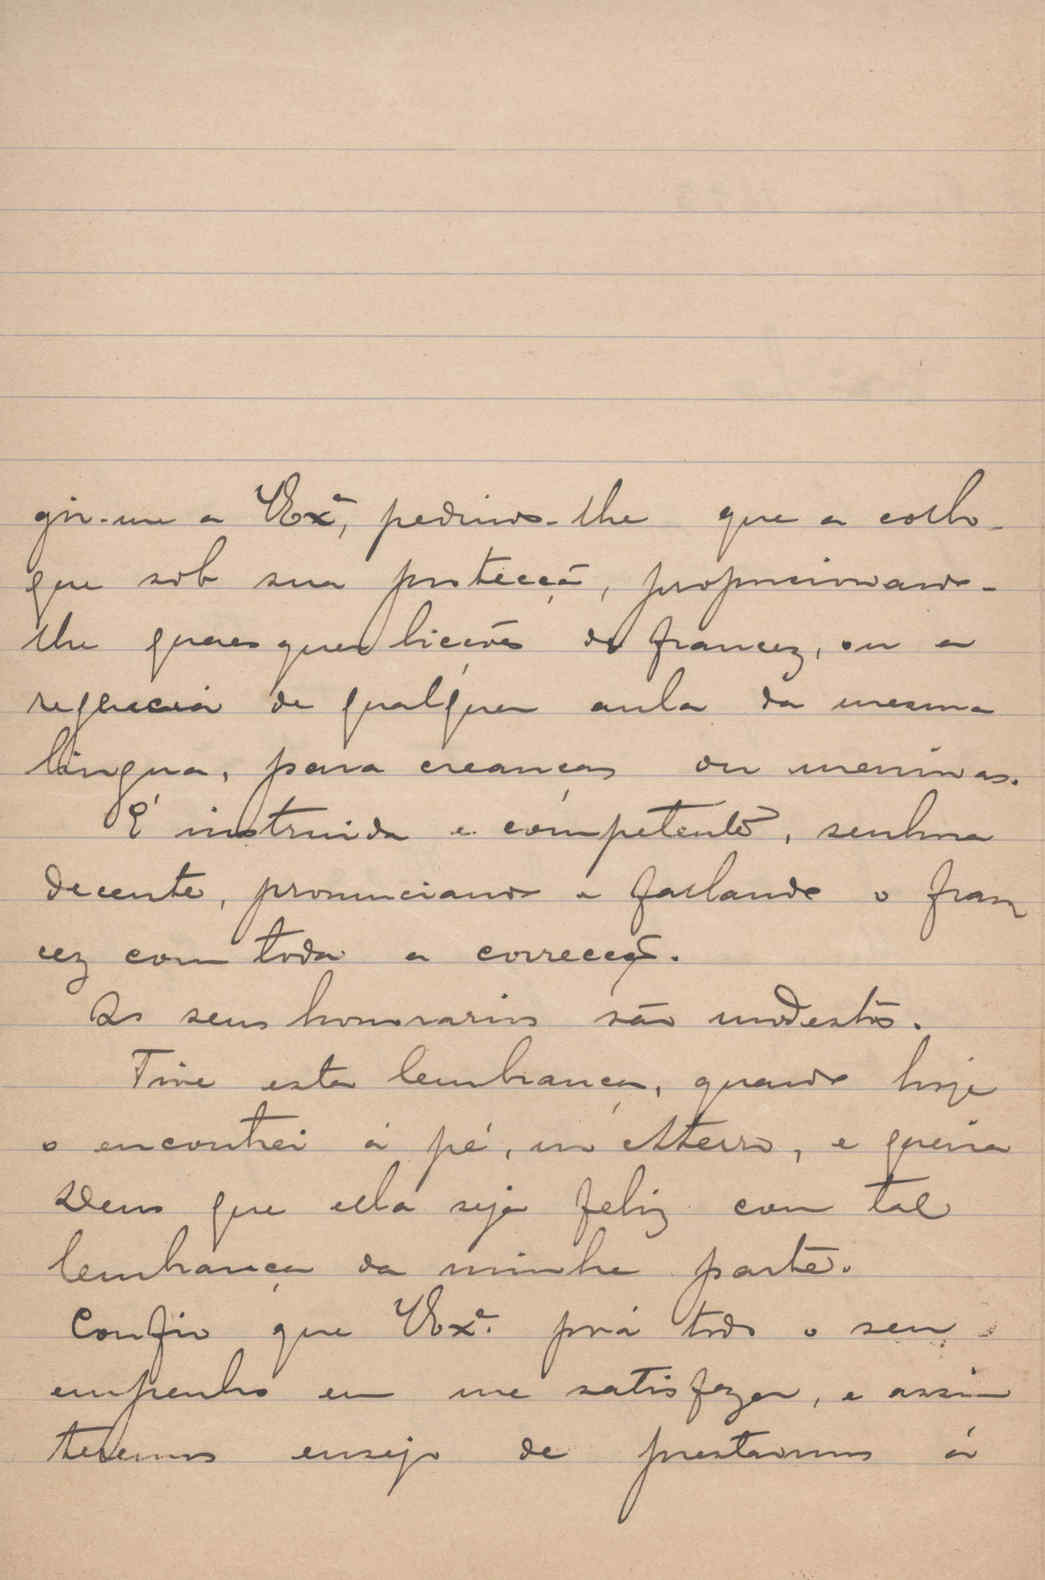 gir-me a VExª, pedindo-lhe que a collo-
que sob sua protecção, proporcionando-
lhe quaesquer licções de francez, ou a
regencia de qualquer aula da mesma
lingua, para creanças ou meninas.
É instruida e competente, senhora
decente, pronunciando e fallando o fran
cez com toda a correcção.
Os seus honorarios são modestos.
Tive esta lembrança, quando hoje
o encontrei á pé, no Aterro, e queira
Deus que ella seja feliz com tal
lembrança da minha parte.
Confio que VExª. porá todo o seu
empenho em me satisfazer, e assim
teremos ensejo de prestarmos á